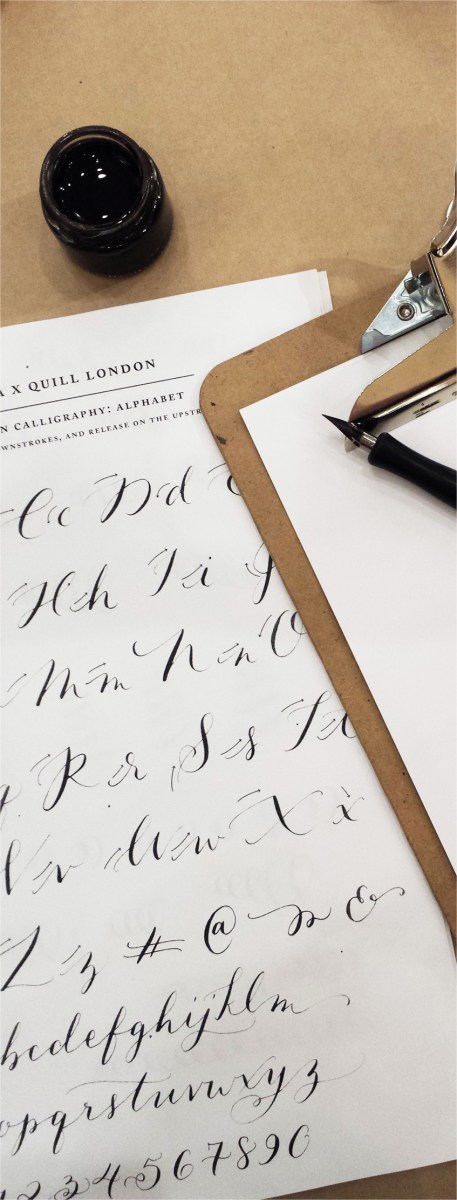 A X QUILL LONDON
N CALLIGRAPHY: ALPHABET
WNSTROKES, AND RELEASE ON THE UPSTR
Cc Dd
Hh Ii J
Mm Nn O
Rr Ss Tt
Vv Ww Xx
Zz # @ &
bcdefghijklm
opqrstuvwxyz
234567890